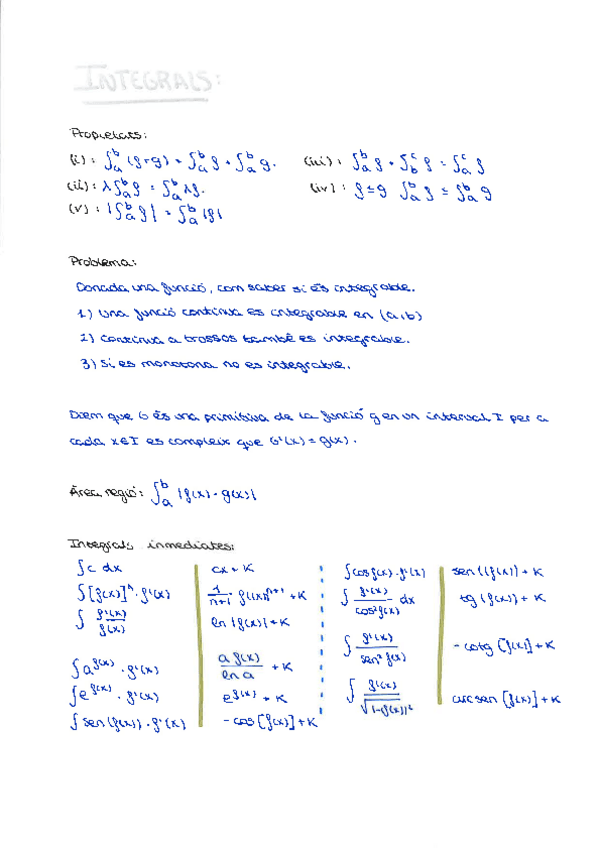 INTEGRALS:
Propietats:
(i): ∫_a^b (f+g) = ∫_a^b f + ∫_a^b g. (iii): ∫_a^b f + ∫_b^c f = ∫_a^c f
(ii): λ∫_a^b f = ∫_a^b λf. (iv): f ≤ g ∫_a^b f ≤ ∫_a^b g
(v): |∫_a^b f| = ∫_a^b |f|
Problema:
Donada una funció, com saber si és integrable.
1) Una funció contínua es integrable en (a,b)
2) Contínua a trossos també es integrable.
3) Si es monotona no es integrable.
Diem que G és una primitiva de la funció g en un interval I per a
cada x∈I es compleix que G'(x) = g(x).
Área regió: ∫_a^b |f(x) - g(x)|
Integrals inmediates:
∫c dx cx + K ∫cos f(x) · f'(x) sen (f(x)) + K
∫[f(x)]^n · f'(x) 1/(n+1) f(x)^(n+1) + K ∫ f'(x)/cos² f(x) dx tg (f(x)) + K
∫ f'(x)/f(x) ln |f(x)| + K ∫ f'(x)/sen² f(x) - cotg [f(x)] + K
∫a^f(x) · f'(x) a f(x)/ln a + K ∫ f'(x)/√(1-f(x))² arcsen [f(x)] + K
∫e^f(x) · f'(x) e^f(x) + K
∫sen (f(x)) · f'(x) - cos [f(x)] + K